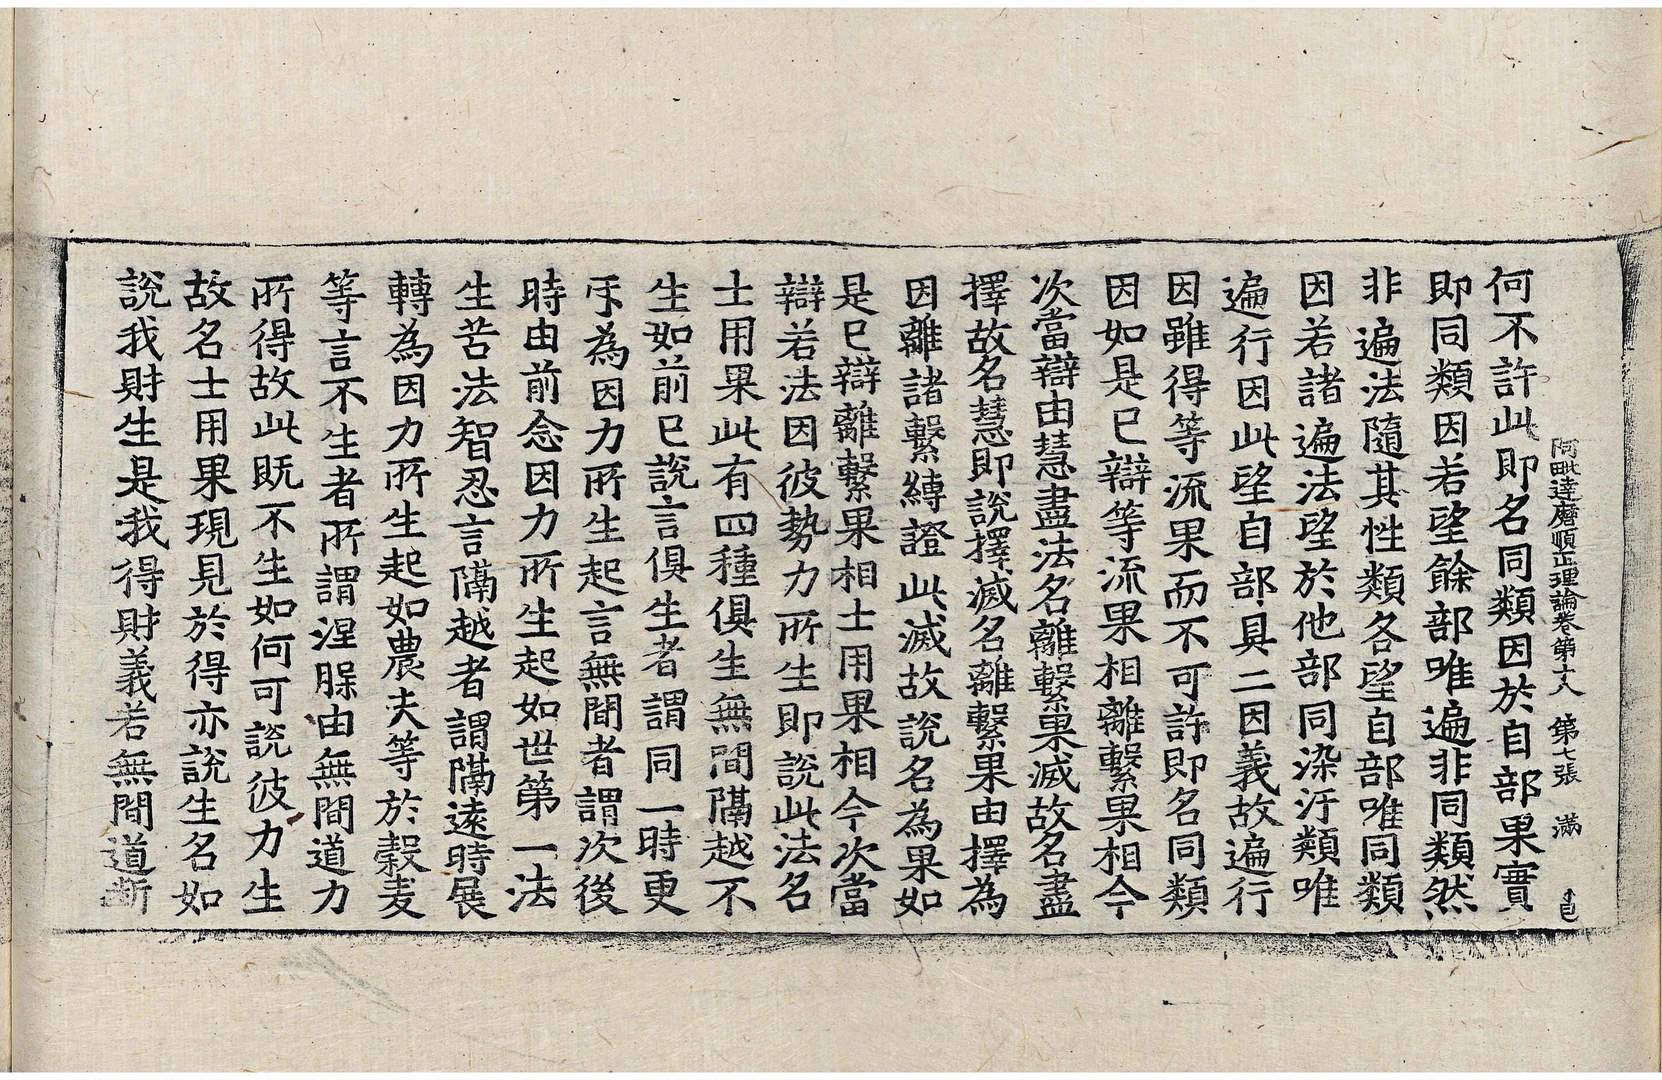 阿毗達磨順正理論卷第十八 第七張 滿
何不許此即名同類因於自部果實
即同類因若望餘部唯遍非同類然
非遍法隨其性類各望自部唯同類
因若諸遍法望於他部同染汙類唯
遍行因此望自部具二因義故遍行
因雖得等流果而不可許即名同類
因如是已辯等流果相離繫果相今
次當辯由慧盡法名離繫果滅故名盡
擇故名慧即說擇滅名離繫果由擇為
因離諸繫縛證此滅故說名為果如
是已辯離繫果相士用果相今次當
辯若法因彼勢力所生即說此法名
士用果此有四種俱生無間隔越不
生如前已說言俱生者謂同一時更
乑為因力所生起言無間者謂次後
時由前念因力所生起如世第一法
生苦法智忍言隔越者謂隔遠時展
轉為因力所生起如農夫等於穀麦
等言不生者所謂涅槃由無間道力
所得故此既不生如何可說彼力生
故名士用果現見於得亦說生名如
說我財生是我得財義若無間道断